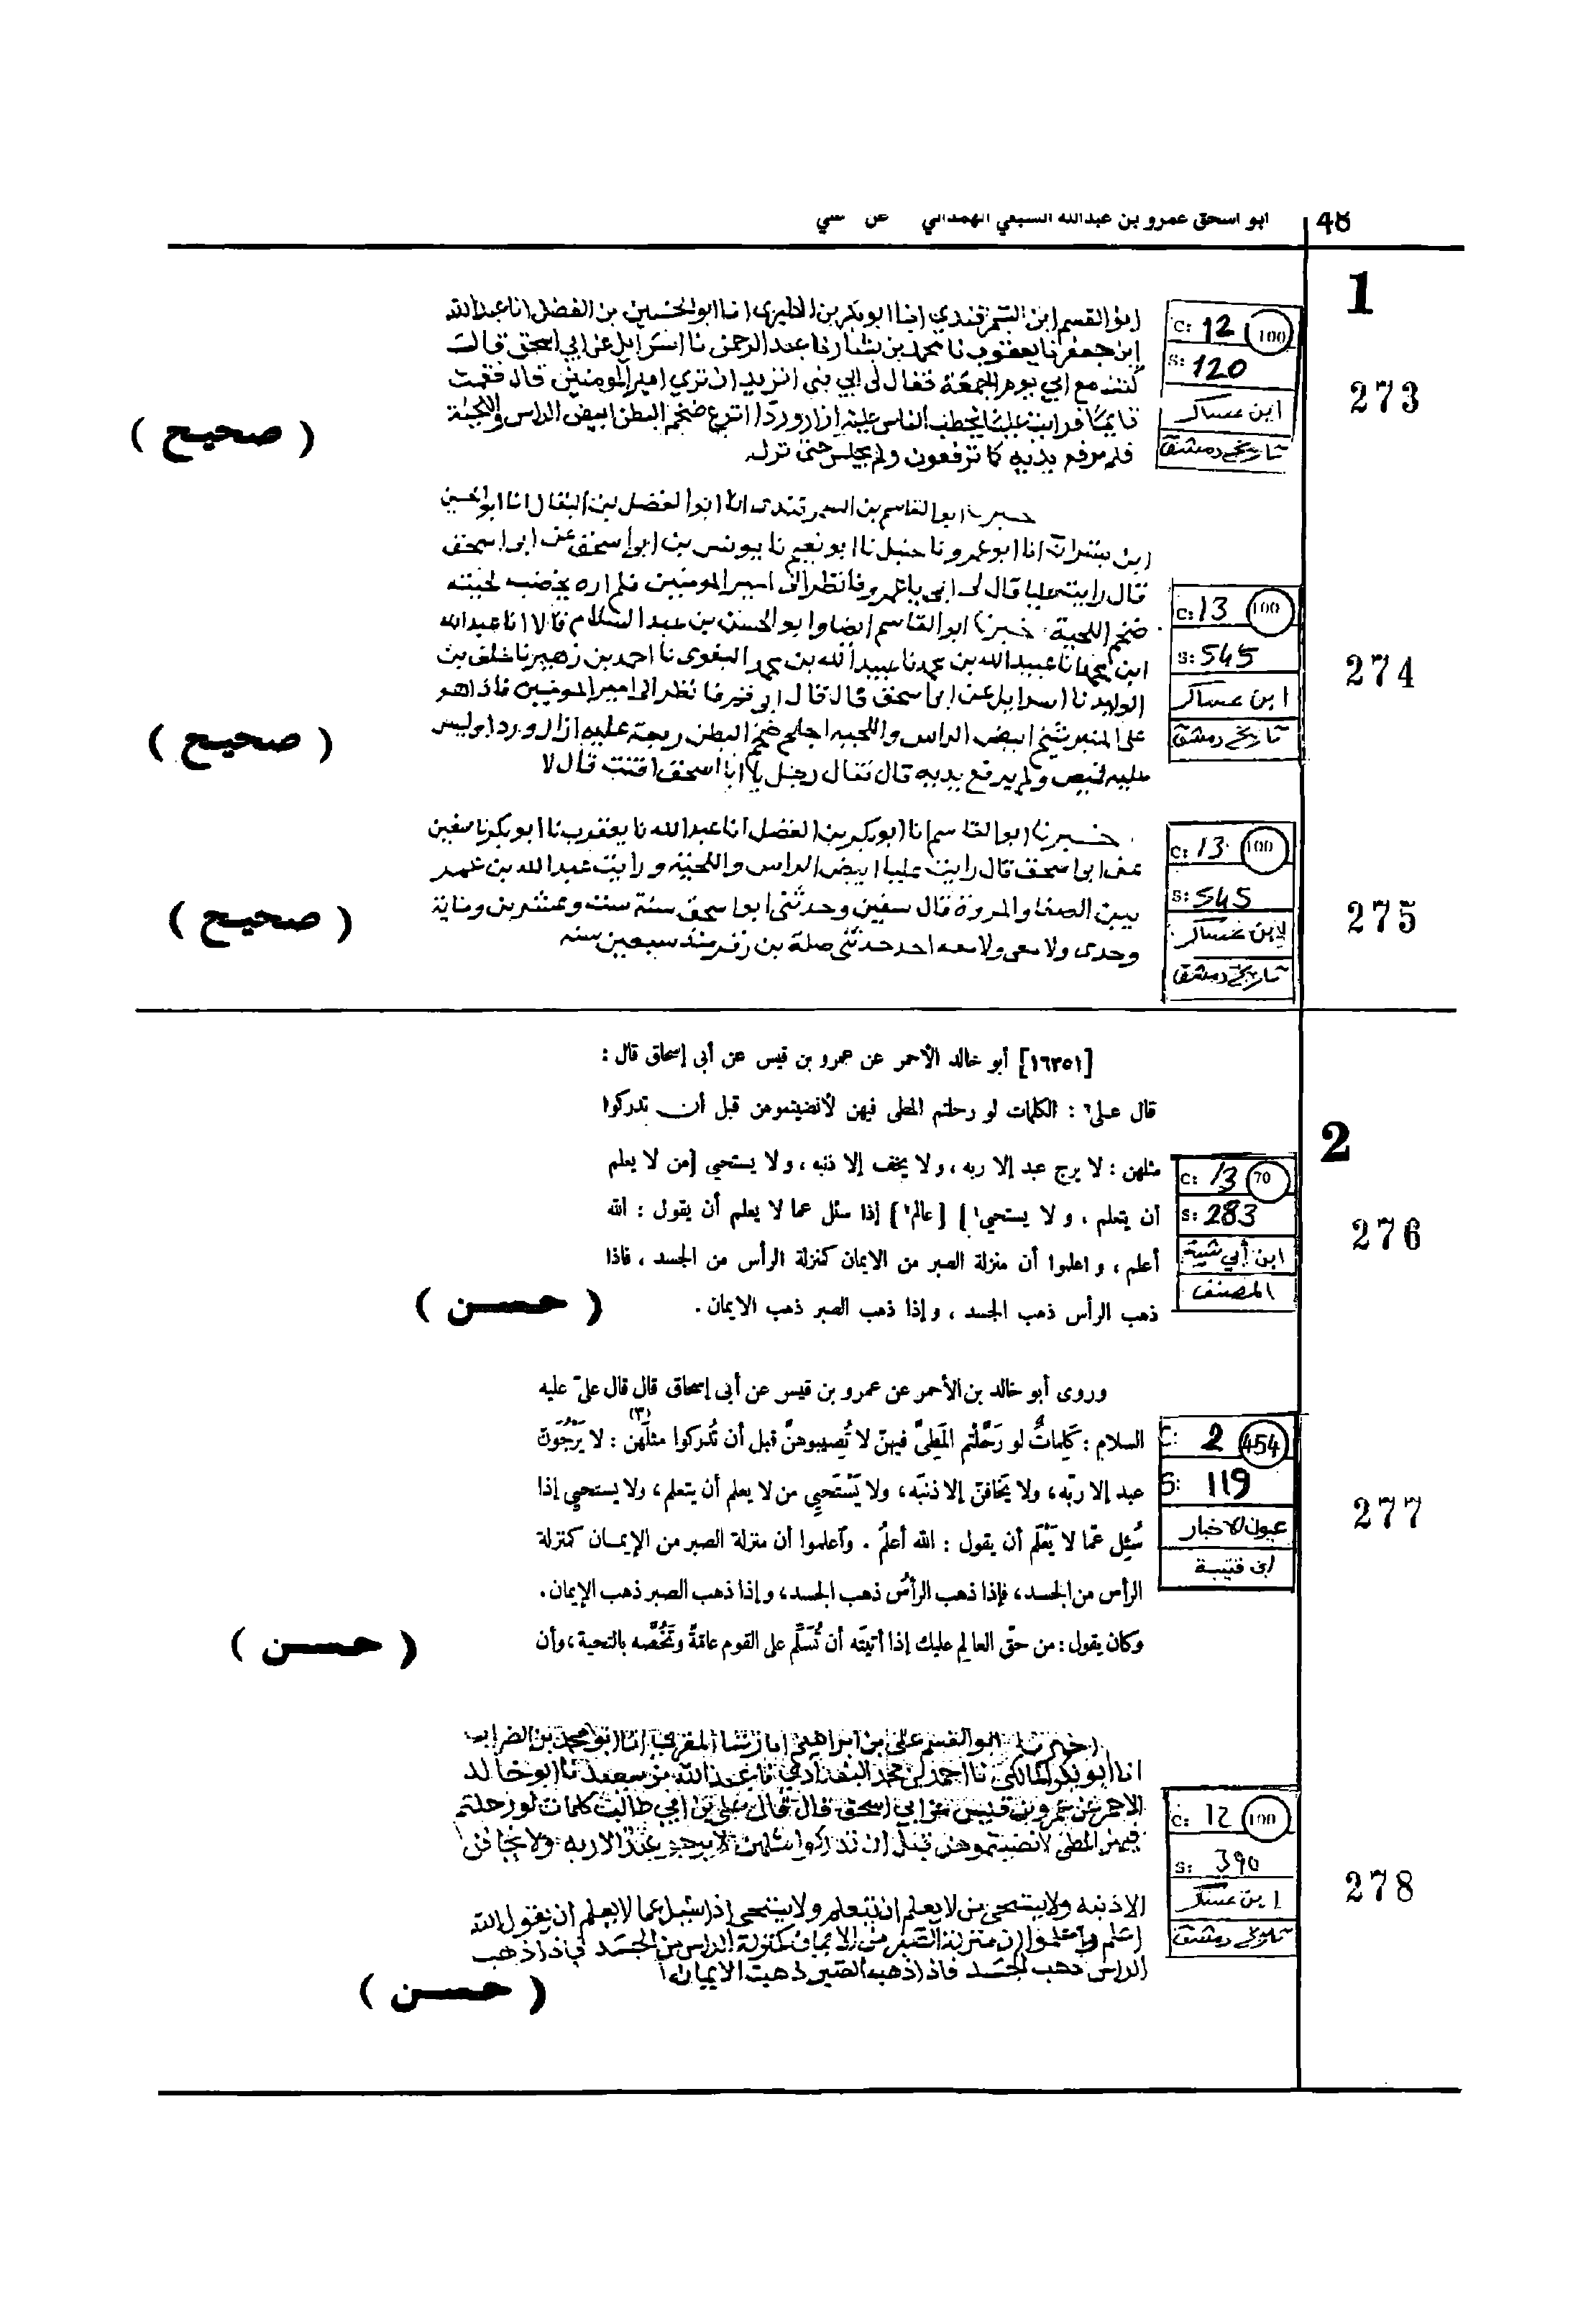 48 ابو اسحق عمرو بن عبدالله السبيعي الهمداني عن علي
1
273
C: 12 (100)
S: 120
ابن عساكر
تاريخ دمشق
ابو القسم ابن السمرقندي انا ابو بكر بن الطبري انا ابو الحسين بن الفضل انا عبدالله
ابن جعفر نا يعقوب نا محمد بن بشار نا عبد الرحمن نا اسرائيل عن ابي اسحق قال
كنت مع ابي يوم الجمعة فقال لي ابي بني اتريد ان تري امير المومنين قال فقمت
قايما فرايت عليا يخطب الناس عليه ازار وردا انزع ضخم البطن ابيض الراس واللحية
فلم يرفع يديه كما ترفعون ولم يجلس حتى نزل
( صحيح )
274
C: 13 (100)
S: 545
ابن عساكر
تاريخ دمشق
خبرنا ابو القاسم بن السمرقندى انا ابو الفضل بن البقال انا ابو الحسين
ابن بشران انا ابو عمرو نا حنبل نا ابو نعيم نا يونس بن ابي اسحق عن ابي اسحق
قال رايت عليا قال لى ابى يا عمرو فانظر الى امير المومنين فلم اره يخضب لحيته
ضخم اللحية خبرنا ابو القاسم ايضا وابو الحسن بن عبد السلام قالا انا عبدالله
ابن محمد انا عبيد الله بن محمد نا عبد الله بن محمد البغوى نا احمد بن زهير نا خلف بن
الوليد نا اسرايل عن ابي اسحق قال قال ابى قم فانظر الى امير المومنين فاذا هو
على المنبر شيخ ابيض الراس واللحيه اجلح ضخم البطن ربعة عليه ازار وردا وليس
عليه قميص ولم يرفع يديه قال فقال رجل يا ابا اسحق اقنت قال لا
( صحيح )
275
C: 13 (100)
S: 545
ابن عساكر
تاريخ دمشق
خبرنا ابو القاسم انا ابو بكر بن الفضل انا عبد الله نا يعقوب نا ابو بكر نا سفين
عن ابى اسحق قال رايت عليا ابيض الراس واللحية ورايت عبد الله بن عمر
بين الصفا والمروة قال سفين وحدثنى ابو اسحق سنة ستة وعشرين وماية
وحدى ولا معى ولا معه احد حدثنى صلة بن زفر منذ سبعين سنه
( صحيح )
2
276
C: 13 (70)
S: 283
ابن أبي شيبة
المصنف
[١٦٣٥١] أبو خالد الأحمر عن عمرو بن قيس عن أبى إسحاق قال :
قال على : الكلمات لو رحلتم المطى فيهن لأنضيتموهن قبل أن تدركوا
مثلهن : لا يرج عبد إلا ربه ، ولا يخف إلا ذنبه ، ولا يستحيي [من لا يعلم
أن يتعلم ، و لا يستحي] [عالم] إذا سئل عما لا يعلم أن يقول : الله
أعلم ، و اعلموا أن منزلة الصبر من الايمان كمنزلة الرأس من الجسد ، فاذا
ذهب الرأس ذهب الجسد ، و إذا ذهب الصبر ذهب الايمان .
( حسن )
277
C: 2 (454)
S: 119
عيون الاخبار
ابن قتيبة
وروى أبو خالد بن الأحمر عن عمرو بن قيس عن أبى إسحاق قال قال علىّ عليه
السلام : كَلِماتٌ لو رَحَّلتم المَطِىَّ فيهنّ لا تُصِيبوهنَّ قبل أن تُدركوا مثلَهن (٣) : لا يَرْجُوَنّ
عبد إلا ربّه ، ولا يَخَافنّ إلا ذنبَه ، ولا يَسْتَحيِي من لا يعلم أن يتعلم ، ولا يستحيِي إذا
سُئِل عمّا لا يَعْلَم أن يقول : الله أعلمُ . وٱعلموا أن منزلة الصبر من الإيمان كمنزلة
الرأس من الجسد ، فإذا ذهب الرأسُ ذهب الجسد ، وإذا ذهب الصبر ذهب الإيمان .
وكان يقول : من حقّ العالم عليك إذا أتيتَه أن تُسَلِّم على القوم عامّةً وتَخُصَّه بالتحية ، وأن
( حسن )
278
C: 12 (100)
S: 390
ابن عساكر
تاريخ دمشق
اخبرنا ابو القسم على بن ابراهيم انا رشا المقرى انا ابو محمد بن الضراب
انا ابو بكر المالكى نا احمد بن محمد البغدادي نا عبد الله بن سعيد نا ابو خالد
الاحمر عن عمرو بن قيس عن ابي اسحق قال قال على بن ابي طالب كلمات لو رحلتم
فيهن المطى لانضيتموهن قبل ان تدركوا مثلهن لا يرجو عبد الا ربه ولا يخافن
الا ذنبه ولا يستحى من لا يعلم ان يتعلم ولا يستحى اذا سيل عما لا يعلم ان يقول الله
اعلم واعلموا ان منزلة الصبر من الايمان كمنزلة الراس من الجسد فاذا ذهب
الراس ذهب الجسد فاذا ذهب الصبر ذهب الايمان
( حسن )